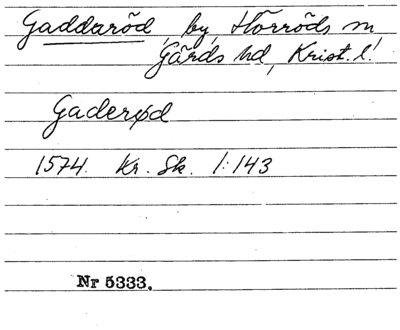 Gaddaröd, by, Hörröds sn,
Gärds hd, Krist. l.
Gaderød
1574. Kr. Sk. 1:143
Nr 5333.